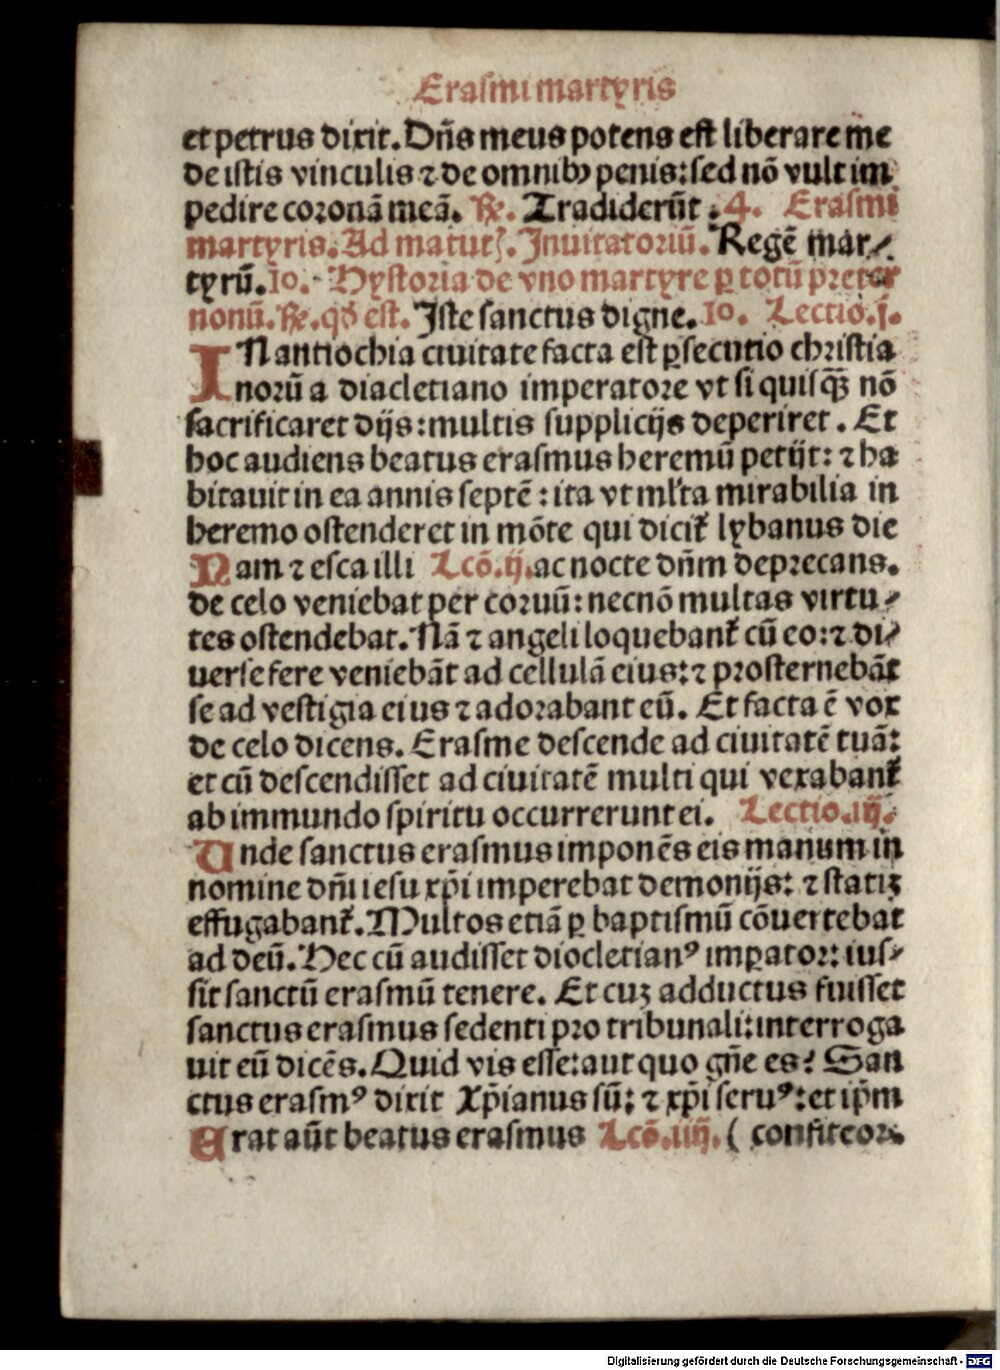 Erasmi martyris
et petrus dixit. Dn̄s meus potens est liberare me
de istis vinculis ⁊ de omnibꝫ penis: sed nō vult im
pedire coronā meā. ℟. Tradiderūt. 4. Erasmi
martyris. Ad matutꝭ. Inuitatoriū. Regē mar⸗
tyrū. 10. Hystoria de vno martyre ꝑ totū preter
nonū. ℟. qđ est. Iste sanctus digne. 10. Lectio. j.
IN antiochia ciuitate facta est ꝑsecutio christia
norū a diacletiano imperatore vt si quisqꝫ nō
sacrificaret dijs: multis supplicijs deperiret. Et
hoc audiens beatus erasmus heremū petijt: ⁊ ha
bitauit in ea annis septē: ita vt ml'ta mirabilia in
heremo ostenderet in mōte qui dicit᷑ lybanus die
Nam ⁊ esca illi Lcō. ij. ac nocte dn̄m deprecans.
de celo veniebat per coruū: necnō multas virtu⸗
tes ostendebat. Nā ⁊ angeli loquebant᷑ cū eo: ⁊ di⸗
uerse fere veniebāt ad cellulā eius: ⁊ prosternebāt
se ad vestigia eius ⁊ adorabant eū. Et facta ē vox
de celo dicens. Erasme descende ad ciuitatē tuā:
et cū descendisset ad ciuitatē multi qui vexabant᷑
ab immundo spiritu occurrerunt ei. Lectio. iij.
Unde sanctus erasmus imponēs eis manum in
nomine dn̄i iesu xp̄i imperebat demonijs: ⁊ statiꝫ
effugabant᷑. Multos etiā ꝑ baptismū cōuertebat
ad deū. Hec cū audisset diocletianꝰ imꝑator: ius⸗
sit sanctū erasmū tenere. Et cuꝫ adductus fuisset
sanctus erasmus sedenti pro tribunali: interroga
uit eū dicēs. Quid vis esse: aut quo gn̄e es? San
ctus erasmꝰ dixit Xp̄ianus sū: ⁊ xp̄i seruꝰ: et ip̄m
Erat aūt beatus erasmus Lcō. iiij. ( confiteor.
Digitalisierung gefördert durch die Deutsche Forschungsgemeinschaft - DFG